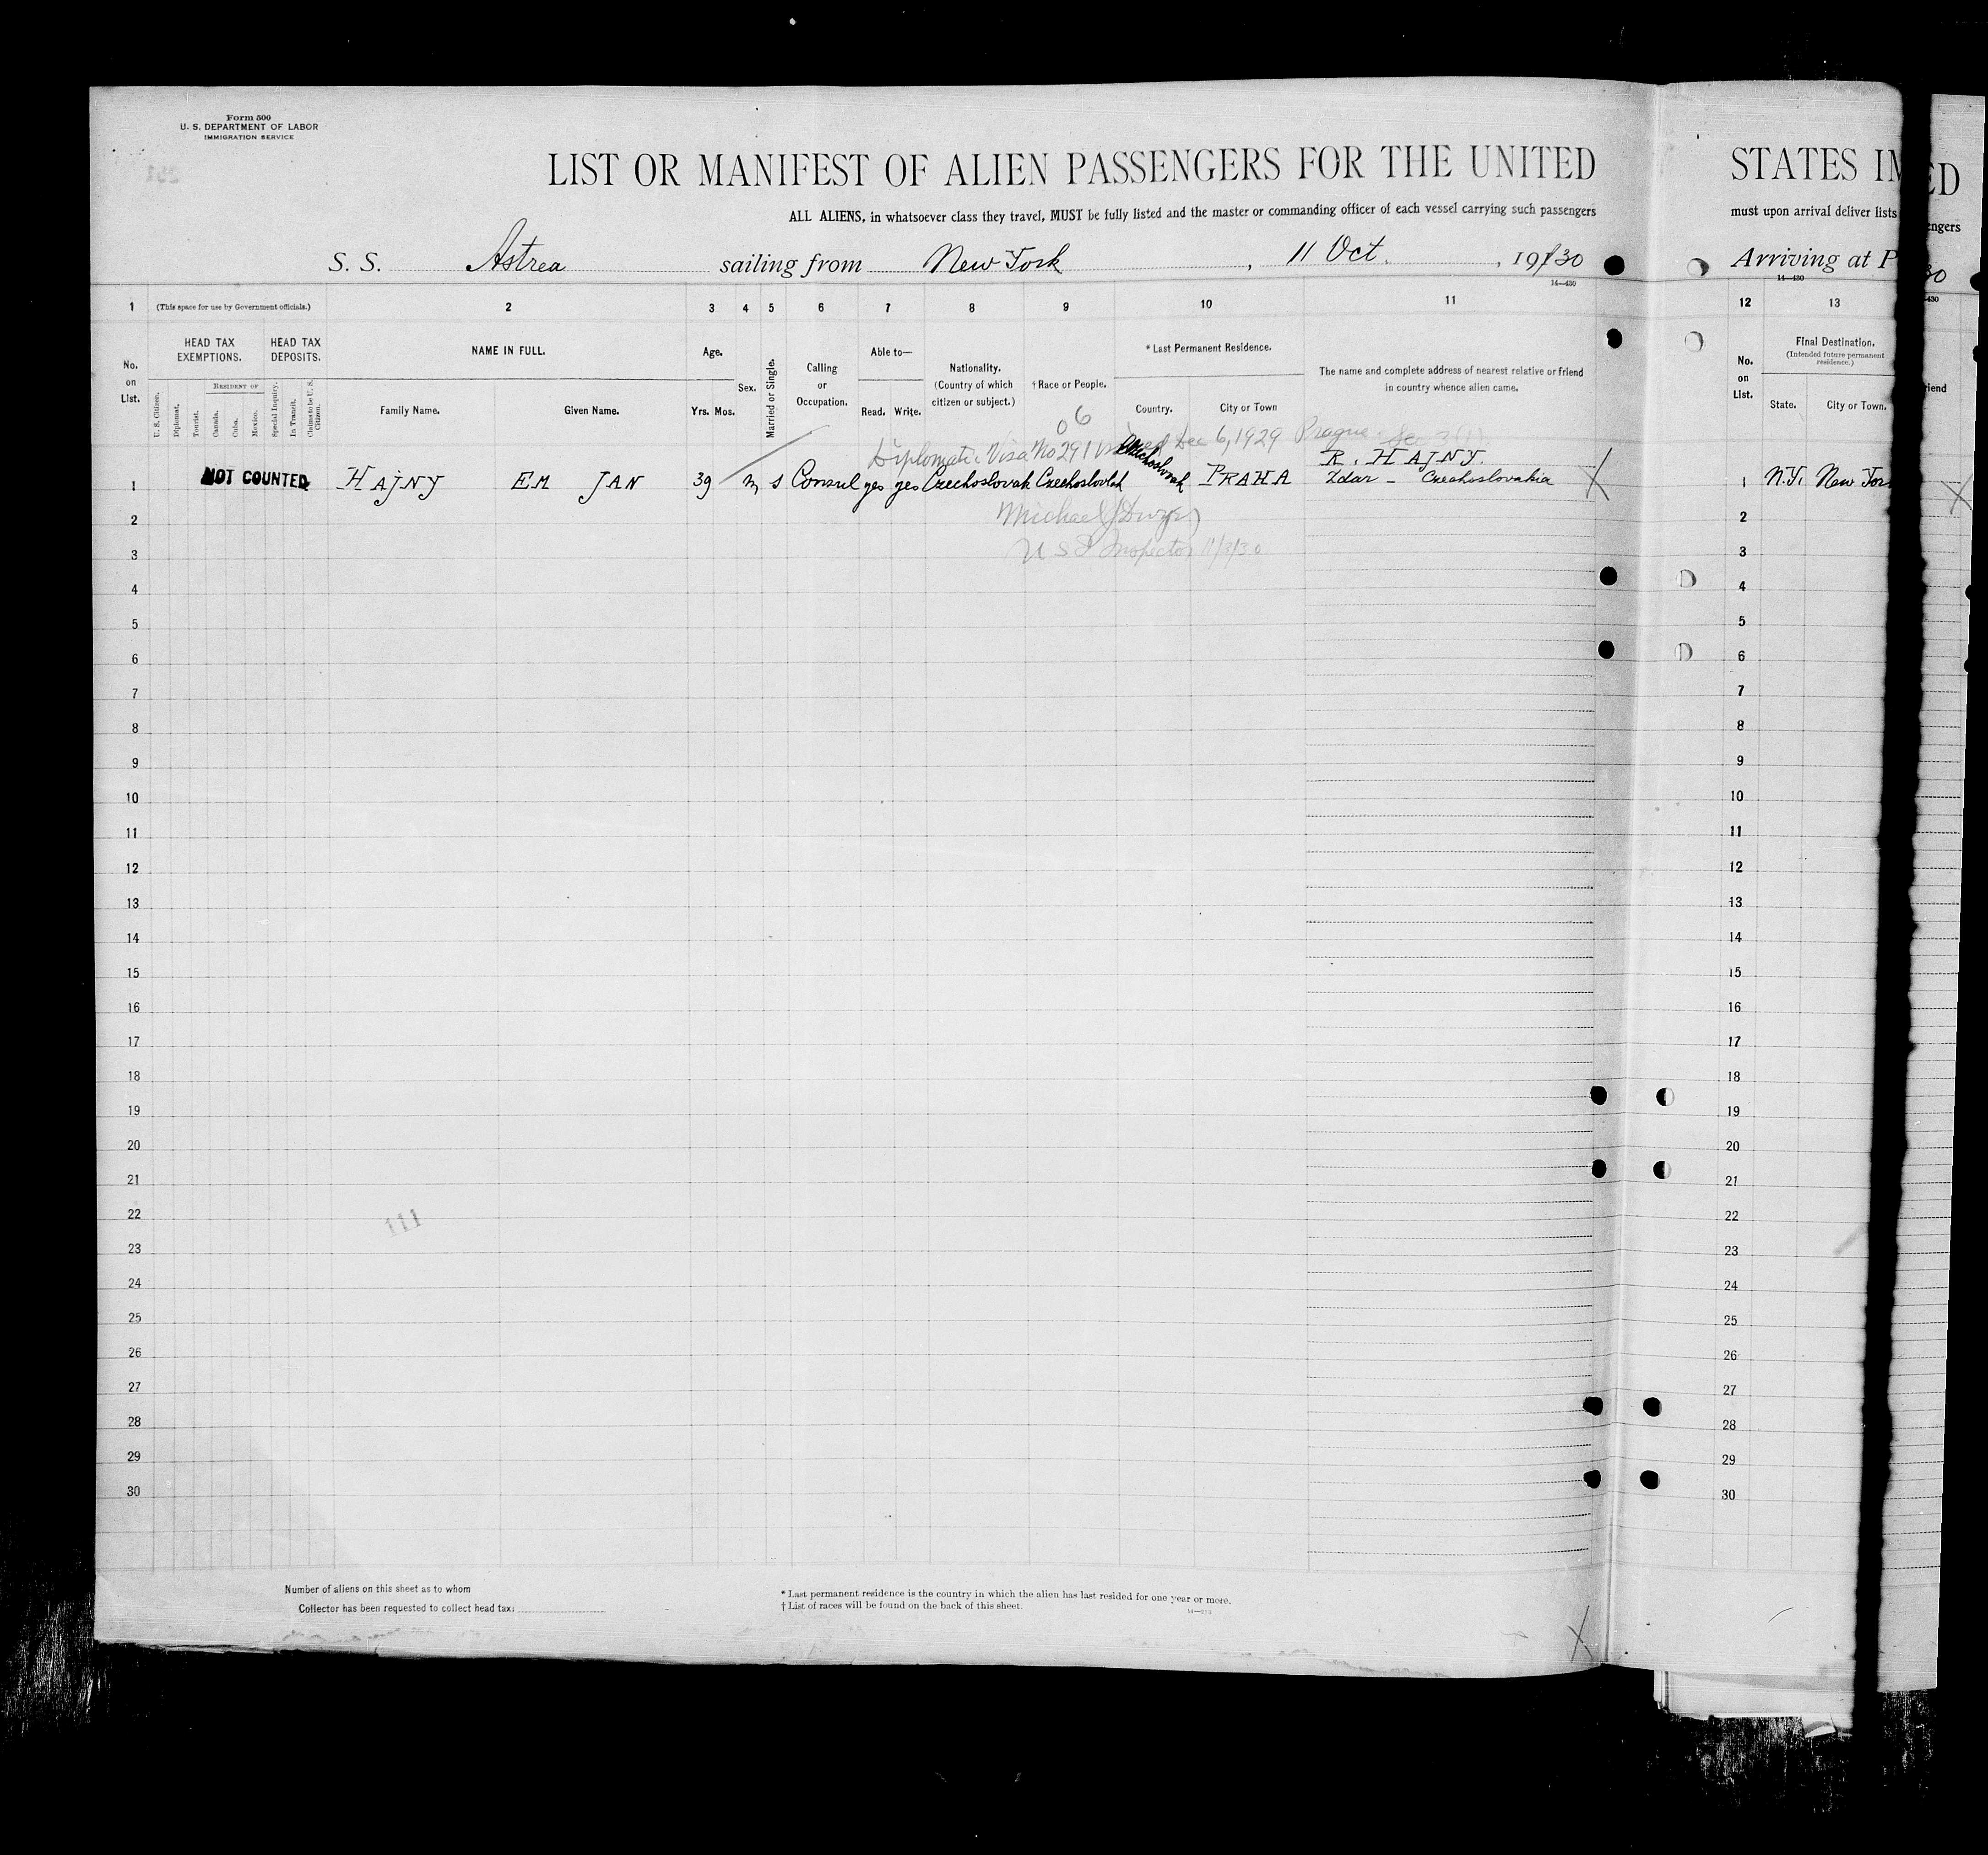 Form 500
U. S. DEPARTMENT OF LABOR
IMMIGRATION SERVICE
LIST OR MANIFEST OF ALIEN PASSENGERS FOR THE UNITED
ALL ALIENS, in whatsoever class they travel, MUST be fully listed and the master or commanding officer of each vessel carrying such passengers
S. S. Astrea sailing from New York, 11 Oct., 1930
14—430
1 (This space for use by Government officials.) 2 3 4 5 6 7 8 9 10 11
No. on List.
HEAD TAX EXEMPTIONS.
HEAD TAX DEPOSITS.
U. S. Citizen.
Diplomat.
Tourist.
RESIDENT OF
Canada.
Cuba.
Mexico.
Special Inquiry.
In Transit.
Claims to be U. S. Citizen.
NAME IN FULL.
Family Name. Given Name.
Age.
Yrs. Mos.
Sex.
Married or Single.
Calling or Occupation.
Able to—
Read. Write.
Nationality. (Country of which citizen or subject.)
† Race or People.
* Last Permanent Residence.
Country. City or Town
The name and complete address of nearest relative or friend in country whence alien came.
06
Diplomatic Visa No 291 Dec 6, 1929 Prague Sec 3(1)
R. HAJNY.
1 NOT COUNTED HAJNY EM JAN 39 m s Consul yes yes Czechoslovak Czechoslovak Czechoslovak PRAHA Zdar - Czechoslovakia X
2 Michael J Dwyer
3 U S I Inspector 11/3/30
4
5
6
7
8
9
10
11
12
13
14
15
16
17
18
19
20
21
22
23
24
25
26
27
28
29
30
111
Number of aliens on this sheet as to whom
Collector has been requested to collect head tax:
* Last permanent residence is the country in which the alien has last resided for one year or more.
† List of races will be found on the back of this sheet.
X
STATES IM
must upon arrival deliver lists
Arriving at P
14—430
12 13
No. on List.
Final Destination.
(Intended future permanent residence.)
State. City or Town.
1 N.Y. New Yor
2
3
4
5
6
7
8
9
10
11
12
13
14
15
16
17
18
19
20
21
22
23
24
25
26
27
28
29
30
ED
engers
30
430
riend
X